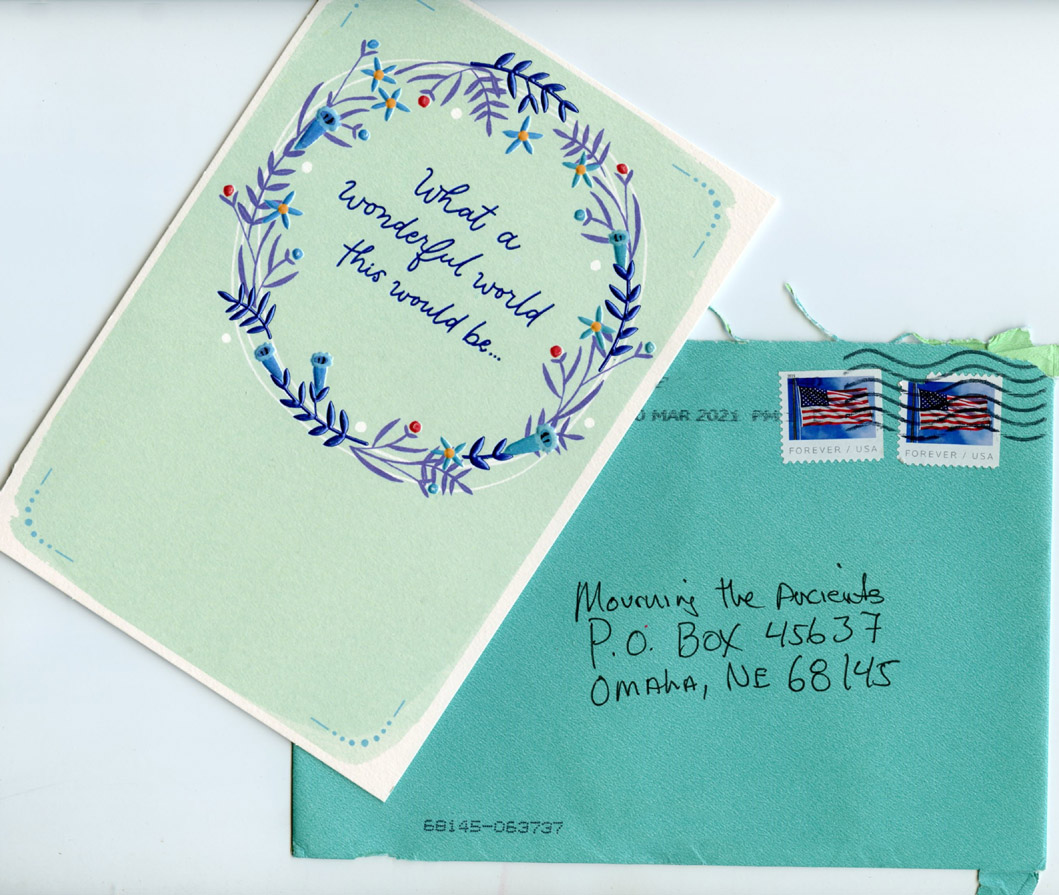 What a
wonderful world
this would be...
0 MAR 2021 PM
FOREVER / USA
FOREVER / USA
Mourning the Ancients
P.O. Box 45637
OMAHA, NE 68145
68145-063737